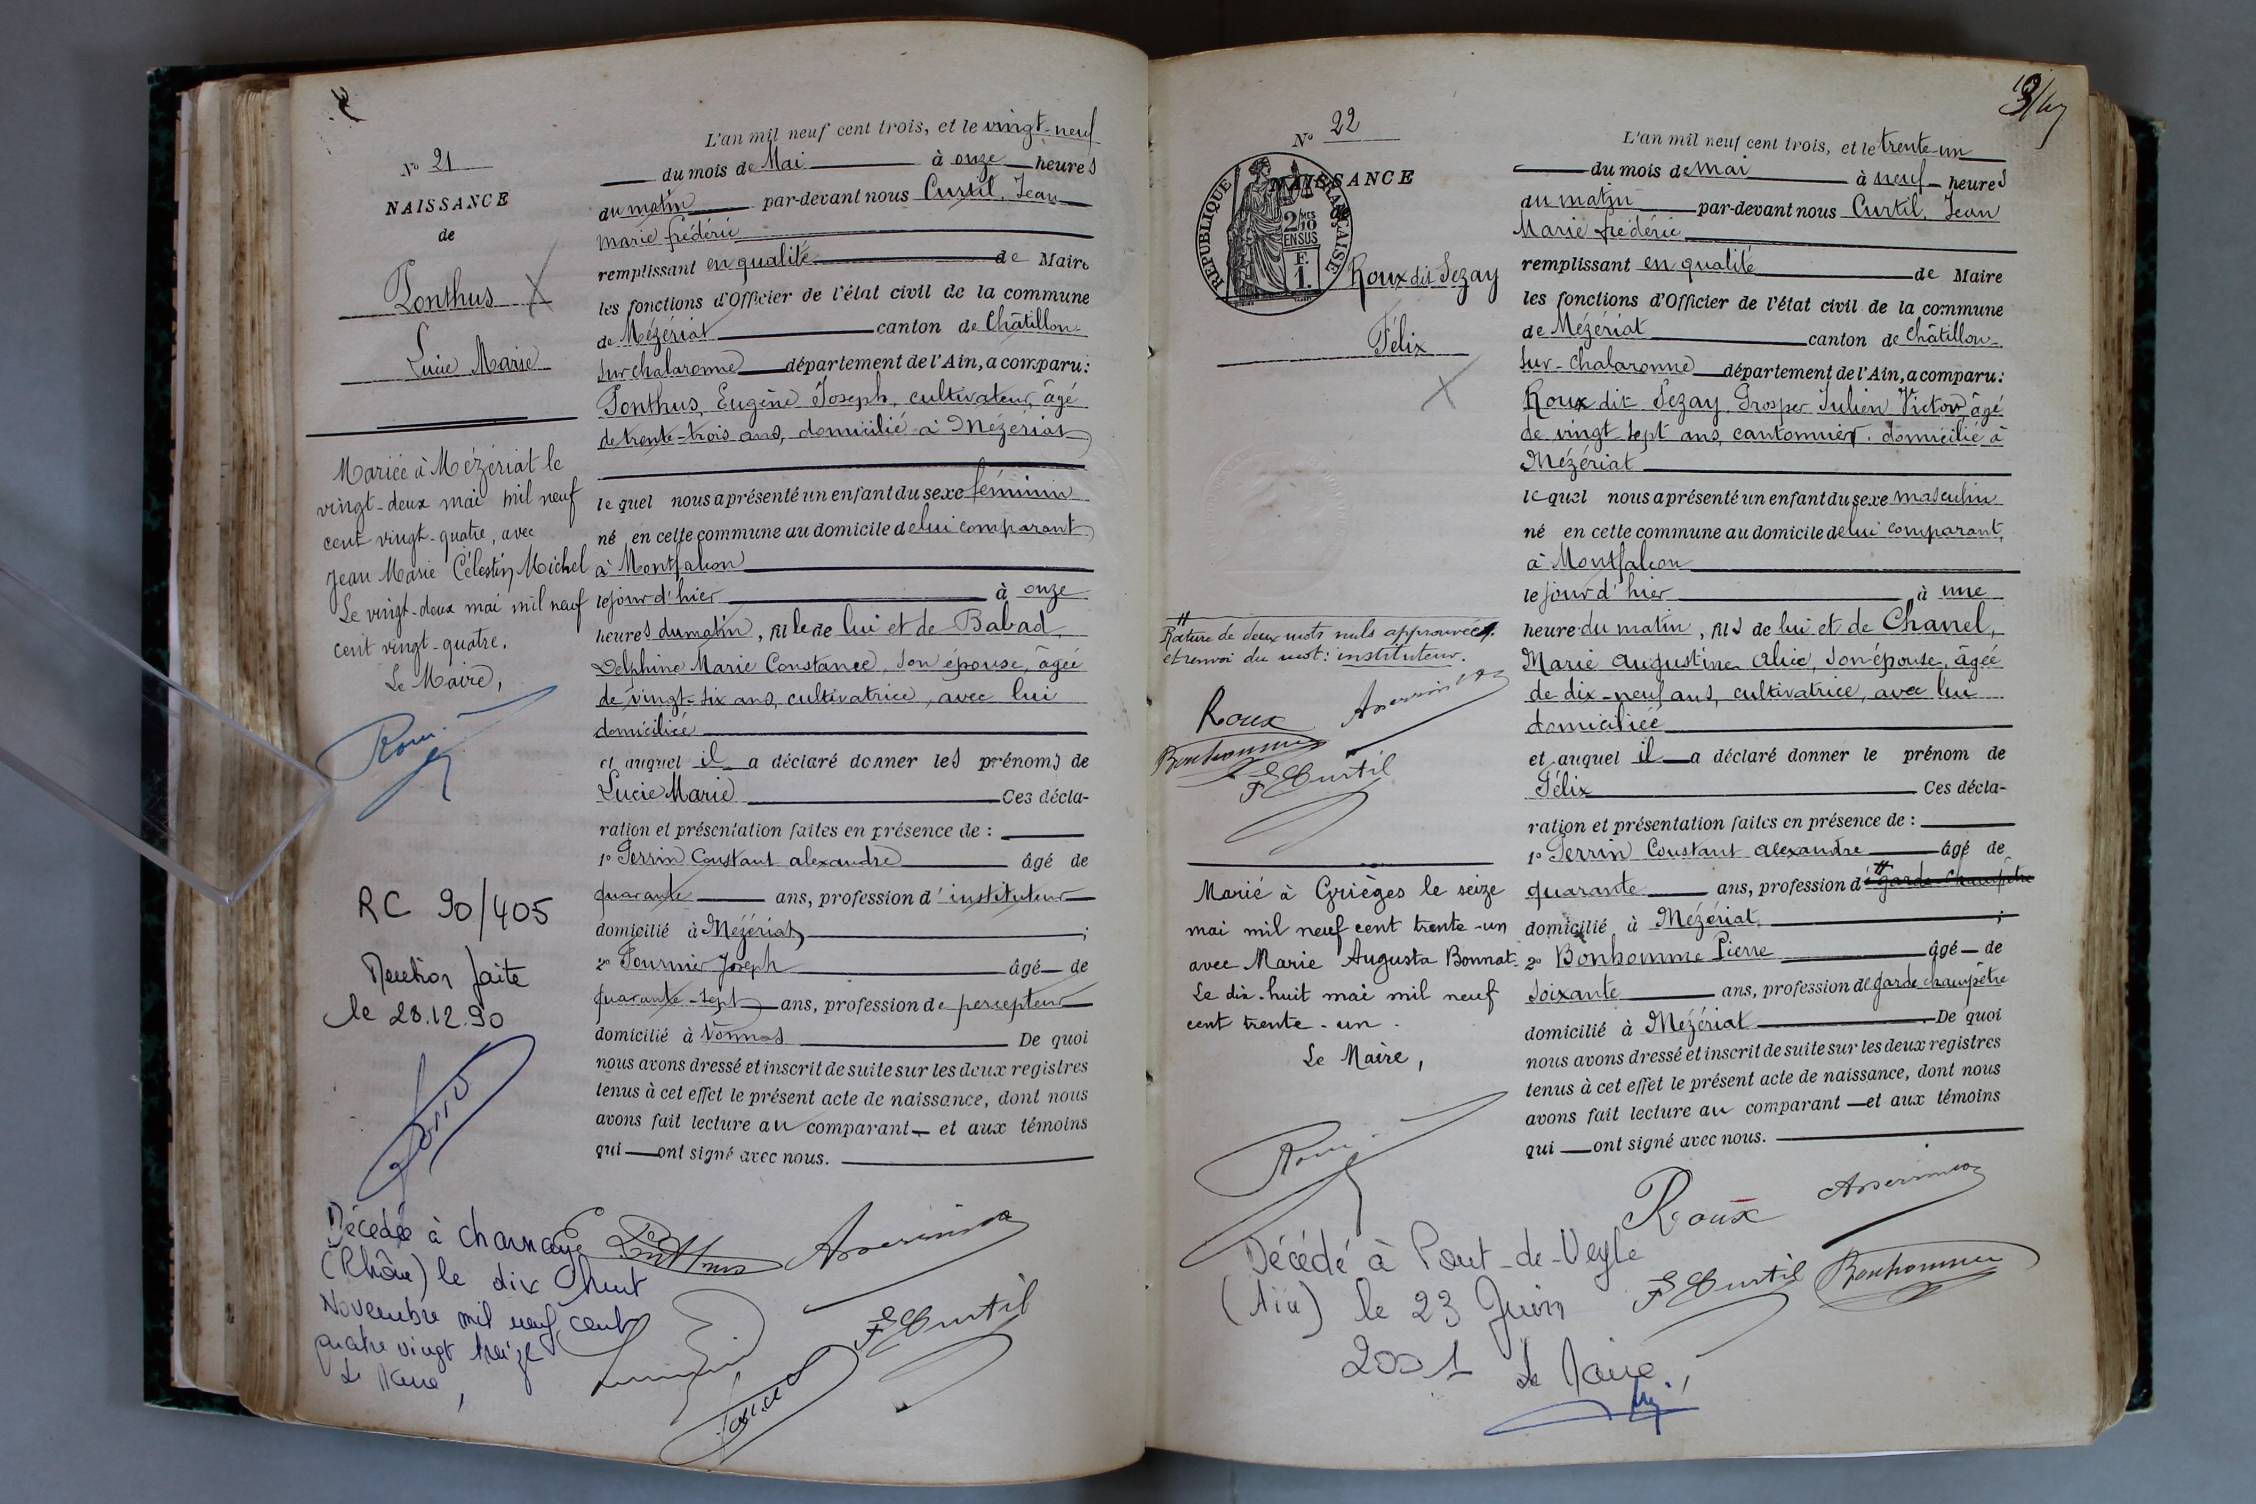 N° 21
NAISSANCE
de
Ponthus
Lucie Marie
Mariée à Mézériat le
vingt-deux mai mil neuf
cent vingt-quatre, avec
Jean Marie Célestin Michel
Le vingt-deux mai mil neuf
cent vingt-quatre.
Le Maire,
RC 90/405
Mention faite
le 28.12.90
Décédée à Charnay
(Rhône) le dix huit
Novembre mil neuf cent
quatre vingt treize
Le Maire,
L'an mil neuf cent trois, et le vingt-neuf
du mois de Mai à onze heures
du matin par-devant nous Curtil, Jean
Marie frédéric
remplissant en qualité de Maire
les fonctions d'Officier de l'état civil de la commune
de Mézériat canton de Châtillon-
sur chalaronne département de l'Ain, a comparu:
Ponthus, Eugène Joseph, cultivateur, âgé
de trente-trois ans, domicilié à Mézériat
le quel nous a présenté un enfant du sexe féminin
né en cette commune au domicile de lui comparant
à Montfalcon
le jour d'hier à onze
heures du matin, fille de lui et de Babad,
Delphine Marie Constance, son épouse, âgée
de vingt-six ans, cultivatrice, avec lui
domiciliée
et auquel il a déclaré donner les prénoms de
Lucie Marie Ces décla-
ration et présentation faites en présence de :
1° Perrin Constant alexandre âgé de
quarante ans, profession d'instituteur
domicilié à Mézériat ;
2° Fournier Joseph âgé de
quarante-sept ans, profession de percepteur
domicilié à Vonnas De quoi
nous avons dressé et inscrit de suite sur les deux registres
tenus à cet effet le présent acte de naissance, dont nous
avons fait lecture au comparant et aux témoins
qui ont signé avec nous.
Ponthus
F Curtil
N° 22
NAISSANCE
RÉPUBLIQUE FRANÇAISE
2/10
EN SUS
F.
1.
Roux dit Sezay
Félix
Rature de deux mots nuls approuvée.
et renvoi du mot: instituteur.
Roux
Bonhomme
F Curtil
Marié à Grièges le seize
mai mil neuf cent trente-un
avec Marie Augusta Bonnat.
Le dix-huit mai mil neuf
cent trente-un.
Le Maire,
Décédé à Pont-de-Veyle
(Ain) le 23 Juin
2001 Le Maire,
L'an mil neuf cent trois, et le trente-un
du mois de mai à neuf heures
du matin par-devant nous Curtil, Jean
Marie frédéric
remplissant en qualité de Maire
les fonctions d'Officier de l'état civil de la commune
de Mézériat canton de châtillon-
sur-chalaronne département de l'Ain, a comparu:
Roux dit Sezay, Prosper Julien Victor, âgé
de vingt-sept ans, cantonnier, domicilié à
Mézériat
le quel nous a présenté un enfant du sexe masculin
né en cette commune au domicile de lui comparant,
à Montfalcon
le jour d'hier à une
heure du matin, fils de lui et de Chanel,
Marie augustine alice, son épouse, âgée
de dix-neuf ans, cultivatrice, avec lui
domiciliée
et auquel il a déclaré donner le prénom de
Félix Ces décla-
ration et présentation faites en présence de :
1° Perrin Constant alexandre âgé de
quarante ans, profession de garde champêtre
domicilié à Mézériat ;
2° Bonhomme Pierre âgé de
soixante ans, profession de garde champêtre
domicilié à Mézériat De quoi
nous avons dressé et inscrit de suite sur les deux registres
tenus à cet effet le présent acte de naissance, dont nous
avons fait lecture au comparant et aux témoins
qui ont signé avec nous.
Roux
F Curtil Bonhomme